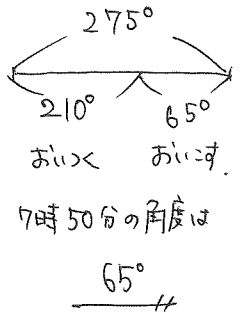 275°
210° 65°
おいつく おいこす.
7時50分の角度は
65°